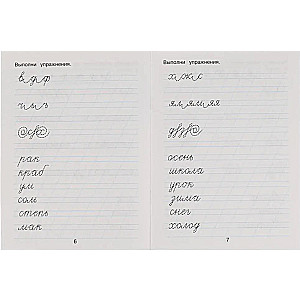 Выполни упражнения.
в д ф
рак
краб
ум
сом
степь
мак
6
Выполни упражнения.
осень
школа
урок
зима
снег
холод
7